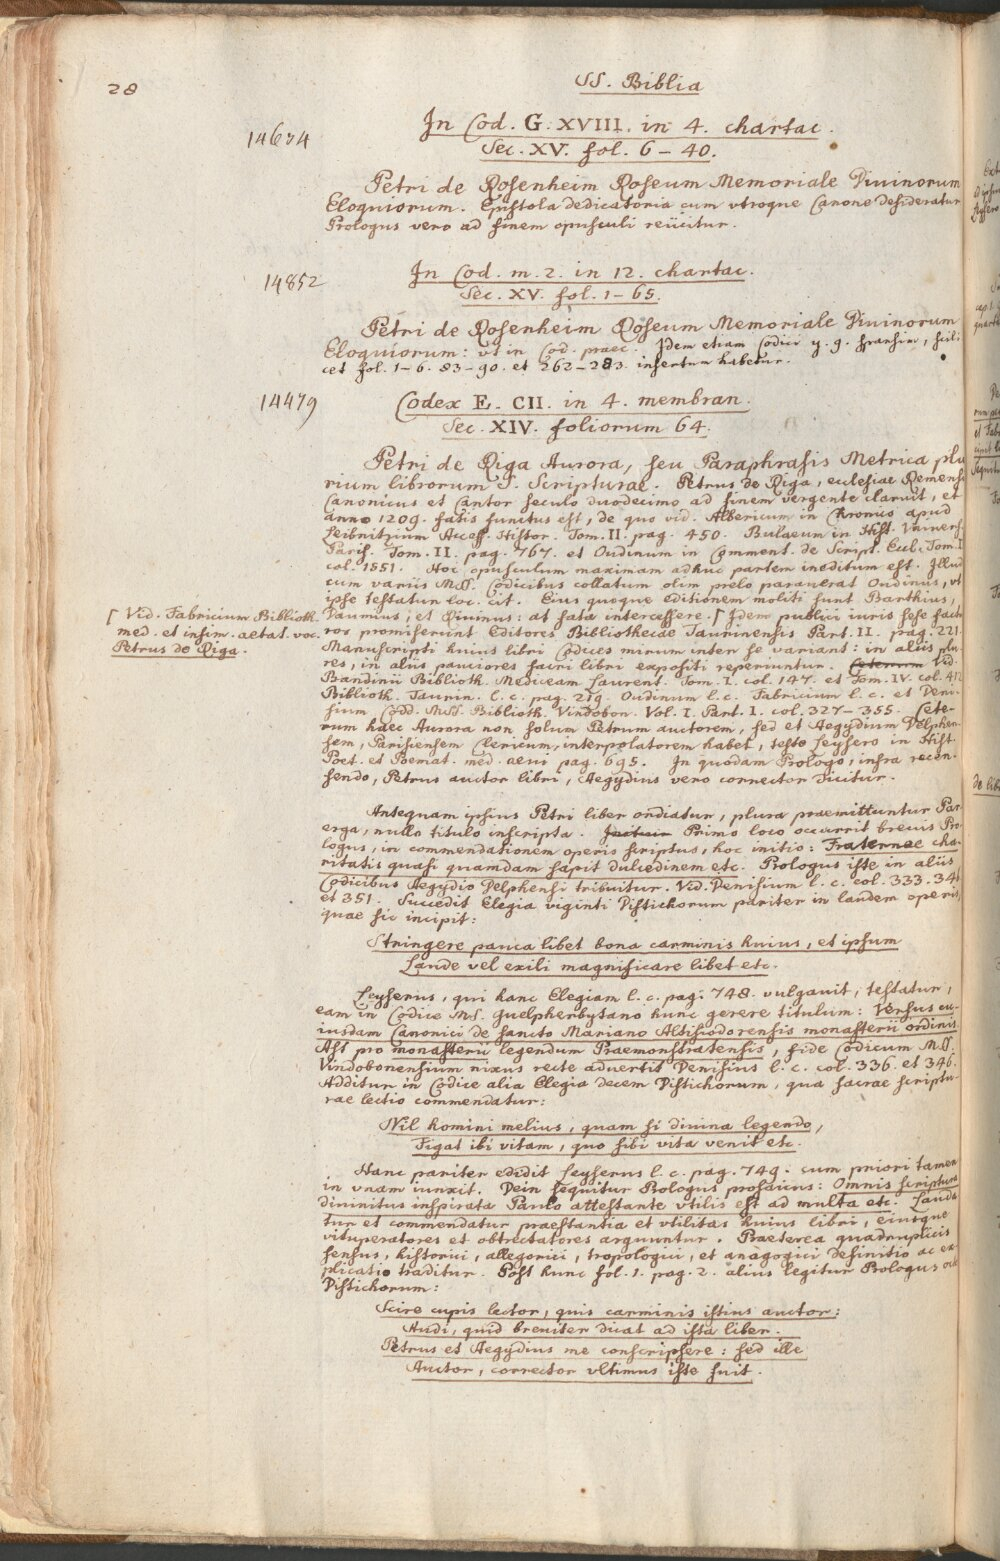 28
SS. Biblia
14634
In Cod. G. XVIII. in 4. chartac.
Sec. XV. fol. 6 – 40.
Petri de Rosenheim Roseum Memoriale Diuinorum
Eloquiorum. Epistola dedicatoria cum vtroque Canone desideratur
Prologus vero ad finem opusculi reiicitur.
14852
In Cod. m. 2. in 12. chartac.
Sec. XV. fol. 1 – 65.
Petri de Rosenheim Roseum Memoriale Diuinorum
Eloquiorum: vt in Cod. praec. Idem etiam Codici y. 9. Fransin, scili
cet fol. 1 – 6. 83 – 90. et 262 – 283. insertum habetur.
14479
Codex E. CII. in 4. membran.
Sec. XIV. foliorum 64.
Petri de Riga Aurora, seu Paraphrasis Metrica plu
rium librorum S. Scripturae. Petrus de Riga, ecclesiae Remensi
Canonicus et Cantor seculo duodecimo ad finem vergente claruit, et
anno 1209. fatis functus est, de quo vid. Albericum in Chronico apud
Leibnitzium Access. Histor. Tom. II. pag. 450. Bulaeum in Hist. Vniuers.
Paris. Tom. II. pag. 767. et Oudinum in Comment. de Script. Eccl. Tom. I
col. 1551. Hoc opusculum maximam adhuc partem ineditum est. Illud
cum variis MSS. Codicibus collatum olim prelo parauerat Oudinus, vt
ipse testatur loc. cit. Eius quoque editionem moliti sunt Barthius,
Daumius, et Quinus: at fata intercessere. ⌈ Idem publici iuris sese factu
ros promiserunt Editores Bibliothecae Taurinensis Part. II. pag. 221.
⌈ Vid. Fabricium Biblioth.
med. et infim. aetat. voc.
Petrus de Riga.
Manuscripti huius libri Codices mirum inter se variant: in aliis plu
res, in aliis pauciores sacri libri expositi reperiuntur. Ceterum Vid.
Bandinii Biblioth. Mediceam Laurent. Tom. I. col. 147. et Tom. IV. col. 412
Biblioth. Taurin. l. c. pag. 219. Oudinum l. c. Fabricium l. c. et Deni-
sium Codd. MSS. Biblioth. Vindobon. Vol. I. Part. I. col. 327 – 355. Cete-
rum haec Aurora non solum Petrum auctorem, sed et Aegydium Delphen-
sem, Parisiensem Clericum, interpolatorem habet, teste Leysero in Hist.
Poet. et Poemat. med. aeui pag. 695. In quodam Prologo, infra recen-
sendo, Petrus auctor libri, Aegydius vero corrector dicitur.
Antequam ipsius Petri liber ordiatur, plura praemittuntur Par-
erga, nullo titulo inscripta. Primo loco occurrit breuis Pro-
logus, in commendationem operis scriptus, hoc initio: Fraternae cha-
ritatis quasi quamdam sapit dulcedinem etc. Prologus iste in aliis
Codicibus Aegydio Delphensi tribuitur. Vid. Denisium l. c. col. 333. 341
et 351. Succedit Elegia viginti Distichorum pariter in laudem operis,
quae sic incipit:
Stringere pauca libet bona carminis huius, et ipsum
Laude vel exili magnificare libet etc.
Leyserus, qui hanc Elegiam l. c. pag. 748. vulgauit, testatur,
eam in Codice MS. Guelpherbytano hunc gerere titulum: Versus cu-
iusdam Canonici de sancto Mariano Altisiodorensis monasterii ordinis
Ast pro monasterii legendum Praemonstratensis, fide Codicum MSS.
Vindobonensium nixus recte aduertit Denisius l. c. col. 336. et 346.
Additur in Codice alia Elegia decem Distichorum, qua sacrae scriptu-
rae lectio commendatur:
Nil homini melius, quam si diuina legendo,
Figat ibi vitam, quo sibi vita venit etc.
Hanc pariter edidit Leyserus l. c. pag. 749. cum priori tamen
in vnam iunxit. Dein sequitur Prologus prosaicus: Omnis scriptura
diuinitus inspirata Paulo attestante vtilis est ad multa etc. Lauda
tur et commendatur praestantia et vtilitas huius libri, eiusque
vituperatores et obtrectatores arguuntur. Praeterea quadruplicis
sensus, historici, allegorici, tropologici, et anagogici definitio ac ex
plicatio traditur. Post hunc fol. 1. pag. 2. alius legitur Prologus octo
Distichorum:
Scire cupis lector, quis carminis istius auctor:
Audi, quid breuiter dicat ad ista liber.
Petrus et Aegydius me conscripsere: sed ille
Auctor, corrector vltimus iste fuit.